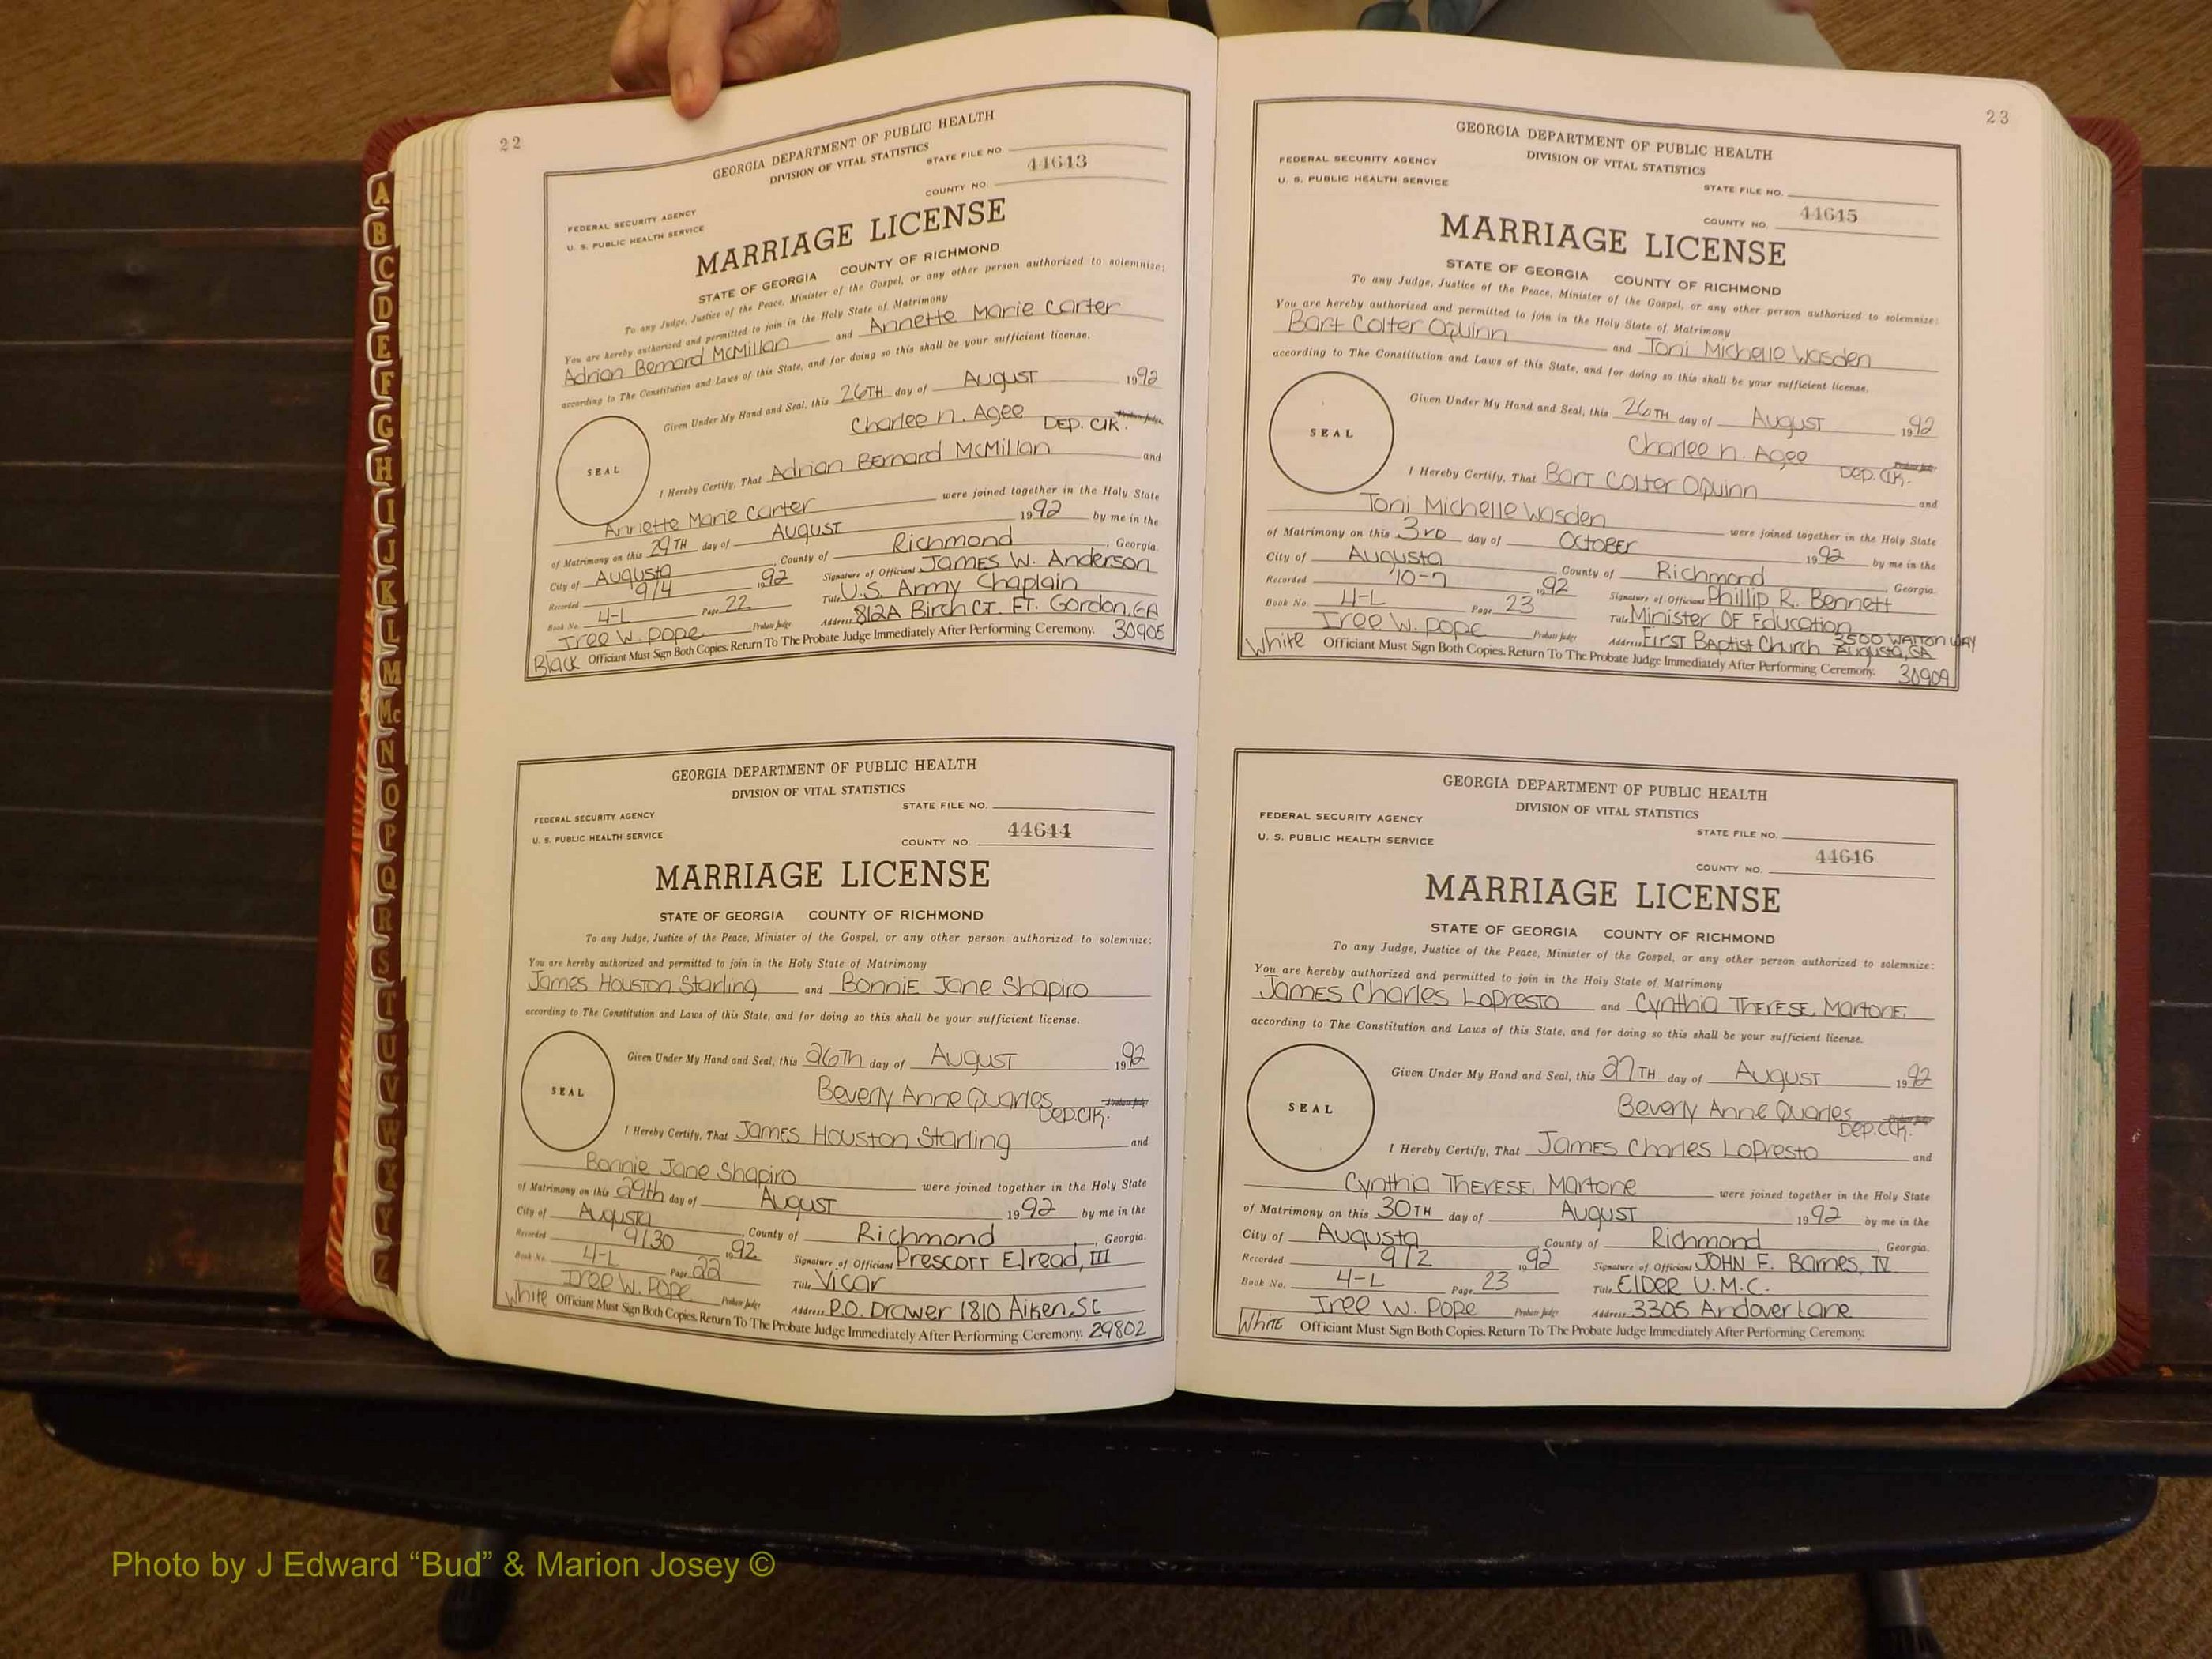 22
GEORGIA DEPARTMENT OF PUBLIC HEALTH
DIVISION OF VITAL STATISTICS
STATE FILE NO.
44643
COUNTY NO.
FEDERAL SECURITY AGENCY
U. S. PUBLIC HEALTH SERVICE
MARRIAGE LICENSE
STATE OF GEORGIA COUNTY OF RICHMOND
To any Judge, Justice of the Peace, Minister of the Gospel, or any other person authorized to solemnize:
You are hereby authorized and permitted to join in the Holy State of Matrimony
Adrian Bernard McMillan and Annette Marie Carter
according to The Constitution and Laws of this State, and for doing so this shall be your sufficient license.
Given Under My Hand and Seal, this 26TH day of August 1992
Charlee n. Agee DEP. Clk. Probate Judge
SEAL
I Hereby Certify, That Adrian Bernard McMillan and
Annette Marie Carter were joined together in the Holy State
of Matrimony on this 29TH day of August 1992 by me in the
City of Augusta, County of Richmond, Georgia.
Recorded 9/4 1992 Signature of Officiant James W. Anderson
Book No. 4-L Page 22 Title U.S. Army Chaplain
Iree W. Pope Probate Judge Address 812A Birch CT. FT. Gordon, GA
Black Officiant Must Sign Both Copies. Return To The Probate Judge Immediately After Performing Ceremony. 30905
GEORGIA DEPARTMENT OF PUBLIC HEALTH
DIVISION OF VITAL STATISTICS
STATE FILE NO.
FEDERAL SECURITY AGENCY
U. S. PUBLIC HEALTH SERVICE
44644
COUNTY NO.
MARRIAGE LICENSE
STATE OF GEORGIA COUNTY OF RICHMOND
To any Judge, Justice of the Peace, Minister of the Gospel, or any other person authorized to solemnize:
You are hereby authorized and permitted to join in the Holy State of Matrimony
James Houston Starling and Bonnie Jane Shapiro
according to The Constitution and Laws of this State, and for doing so this shall be your sufficient license.
Given Under My Hand and Seal, this 26Th day of August 1992
Beverly Anne Quarles Dep. Clk. Probate Judge
SEAL
I Hereby Certify, That James Houston Starling and
Bonnie Jane Shapiro were joined together in the Holy State
of Matrimony on this 29th day of August 1992 by me in the
City of Augusta, County of Richmond, Georgia.
Recorded 9/30 1992 Signature of Officiant Prescott Elread, III
Book No. 4-L Page 22 Title Vicar
Iree W. Pope Probate Judge Address P.O. Drawer 1810 Aiken, SC
White Officiant Must Sign Both Copies. Return To The Probate Judge Immediately After Performing Ceremony. 29802
23
GEORGIA DEPARTMENT OF PUBLIC HEALTH
DIVISION OF VITAL STATISTICS
FEDERAL SECURITY AGENCY
U. S. PUBLIC HEALTH SERVICE
STATE FILE NO.
44645
COUNTY NO.
MARRIAGE LICENSE
STATE OF GEORGIA COUNTY OF RICHMOND
To any Judge, Justice of the Peace, Minister of the Gospel, or any other person authorized to solemnize:
You are hereby authorized and permitted to join in the Holy State of Matrimony
Bart Colter OQuinn and Toni Michelle Wasden
according to The Constitution and Laws of this State, and for doing so this shall be your sufficient license.
Given Under My Hand and Seal, this 26TH day of August 1992
Charlee n. Agee Dep. Clk. Probate Judge
SEAL
I Hereby Certify, That Bart Colter OQuinn and
Toni Michelle Wasden were joined together in the Holy State
of Matrimony on this 3rd day of October 1992 by me in the
City of Augusta, County of Richmond, Georgia.
Recorded 10-7 1992 Signature of Officiant Phillip R. Bennett
Book No. 4-L Page 23 Title Minister OF Education
Iree W. Pope Probate Judge Address First Baptist Church 3500 WALTON WAY Augusta, GA
White Officiant Must Sign Both Copies. Return To The Probate Judge Immediately After Performing Ceremony. 30909
GEORGIA DEPARTMENT OF PUBLIC HEALTH
DIVISION OF VITAL STATISTICS
FEDERAL SECURITY AGENCY
U. S. PUBLIC HEALTH SERVICE
STATE FILE NO.
44646
COUNTY NO.
MARRIAGE LICENSE
STATE OF GEORGIA COUNTY OF RICHMOND
To any Judge, Justice of the Peace, Minister of the Gospel, or any other person authorized to solemnize:
You are hereby authorized and permitted to join in the Holy State of Matrimony
James Charles LoPresto and Cynthia Therese Martone
according to The Constitution and Laws of this State, and for doing so this shall be your sufficient license.
Given Under My Hand and Seal, this 27TH day of August 1992
Beverly Anne Quarles Dep. Clk.
SEAL
I Hereby Certify, That James Charles LoPresto and
Cynthia Therese Martone were joined together in the Holy State
of Matrimony on this 30TH day of August 1992 by me in the
City of Augusta, County of Richmond, Georgia.
Recorded 9/2 1992 Signature of Officiant JOHN F. Barnes, IV
Book No. 4-L Page 23 Title Elder U.M.C.
Iree W. Pope Probate Judge Address 3305 Andover Lane
White Officiant Must Sign Both Copies. Return To The Probate Judge Immediately After Performing Ceremony.
A
B
C
D
E
F
G
H
I
J
K
L
M
Mc
N
O
P
Q
R
S
T
U
V
W
X
Y
Z
Photo by J Edward “Bud” & Marion Josey ©